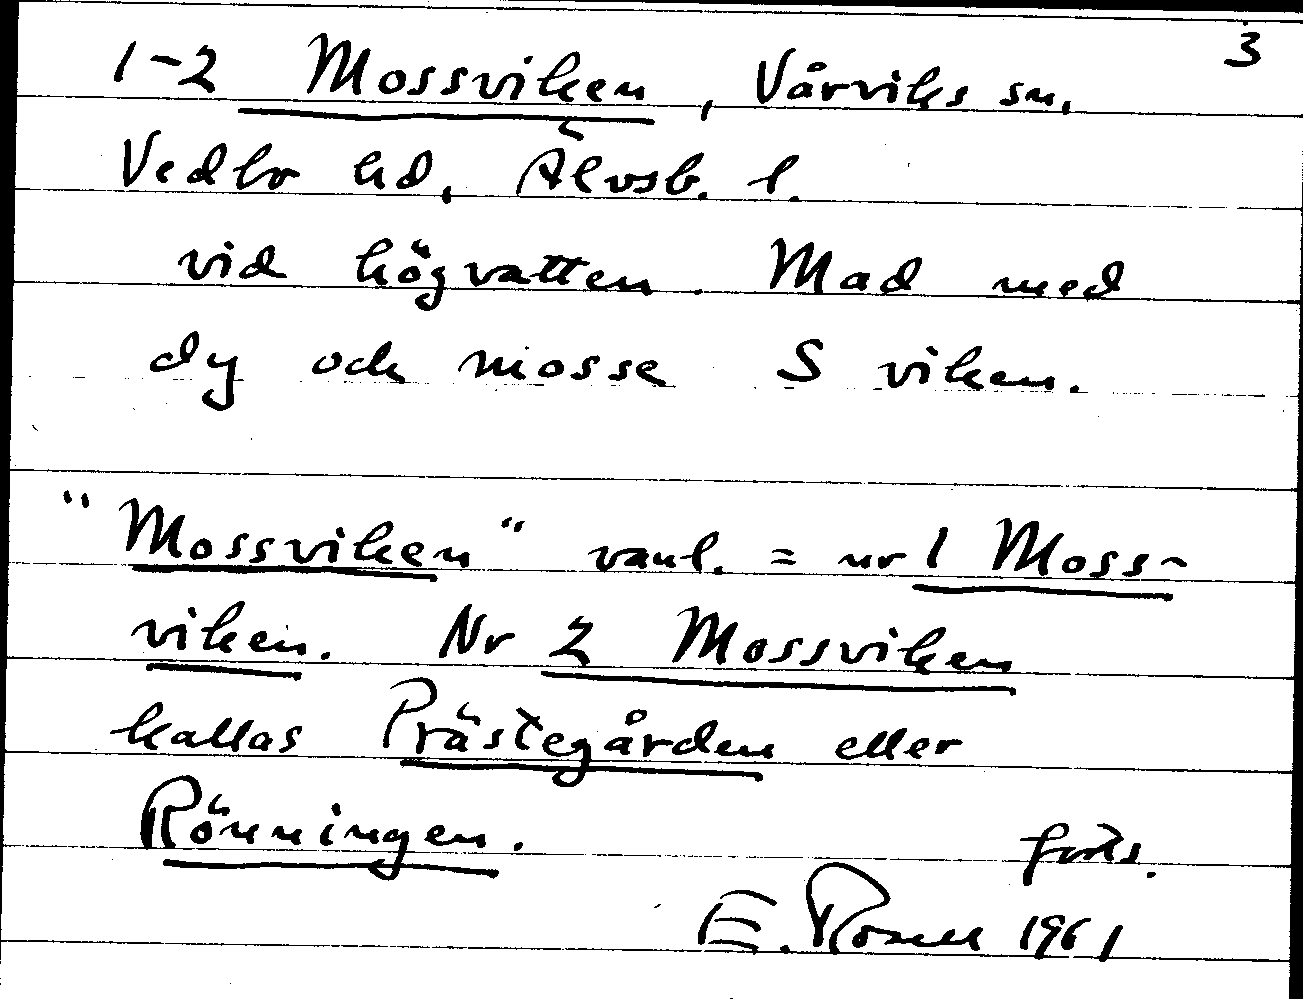 3
1-2 Mossviken, Vårviks sn,
Vedbo hd, Älvsb. l.
vid högvatten. Mad med
dy och mosse S viken.
"Mossviken" vanl. = nr 1 Moss-
viken. Nr 2 Mossviken
kallas Prästegården eller
Rönningen.
forts.
E. Rosell 1961